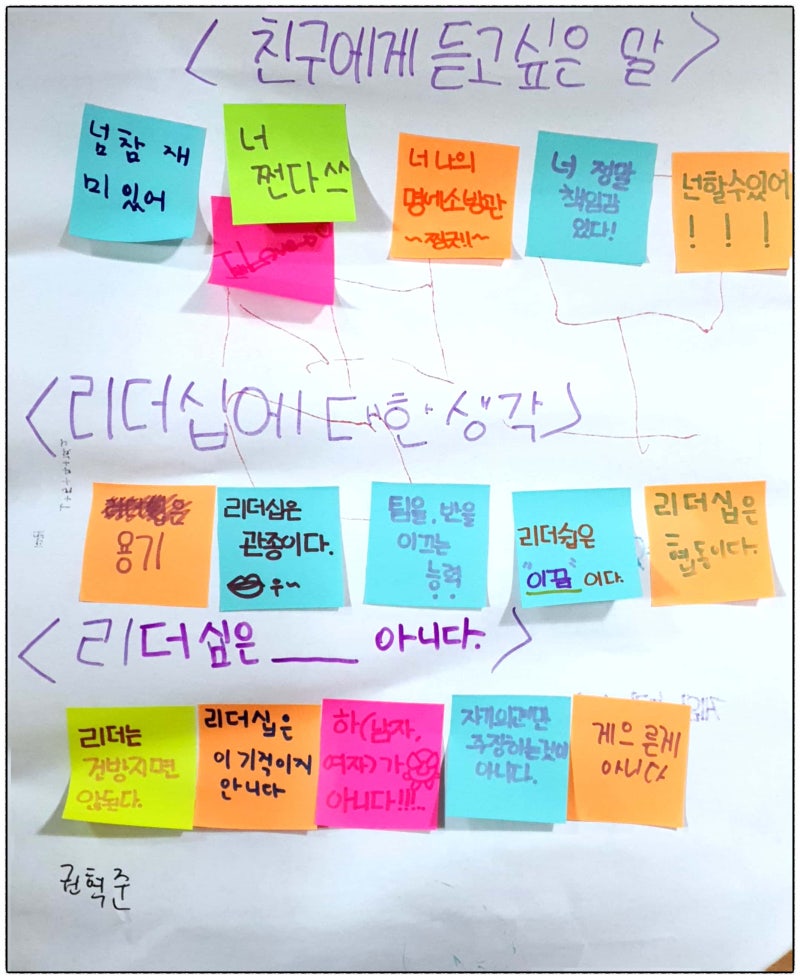 < 친구에게 듣고싶은 말 >
넘 참 재
미 있어
너
쩐다쓰
너 나의
명예소방관
~찡긋!!~
너 정말
책임감
있다!
넌할수있어
! ! !
<리더십에 대한 생각>
용기
리더십은
관종이다.
우~
팀을, 반을
이끄는
능력
리더쉽은
"이끔" 이다.
리더십은
협동이다.
<리더십은 ____ 아니다.>
리더는
건방지면
않된다.
리더십은
이기적이지
안니다
하(남자,
여자)가
아니다!!!..
자기의견만
주장하는것이
아니다.
게으른게
아니다
권혁준